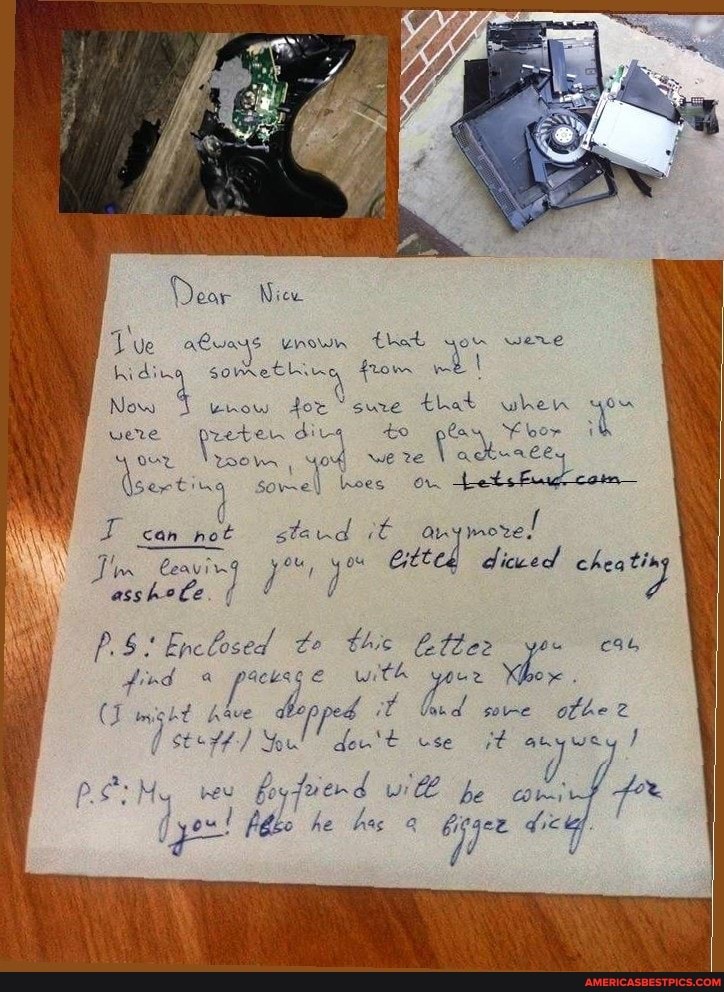 Dear Nick
I've always known that you were
hiding something from me!
Now I know for sure that when you
were pretending to play Xbox in
your room, you were actually
sexting some hoes on LetsFuk.com
I can not stand it anymore!
I'm leaving you, you little dicked cheating
asshole.
P.S: Enclosed to this letter you can
find a package with your Xbox.
(I might have dropped it and some other
stuff!) You don't use it anyway!
P.S²: My new boyfriend will be coming for
you! Also he has a bigger dick.
AMERICASBESTPICS.COM